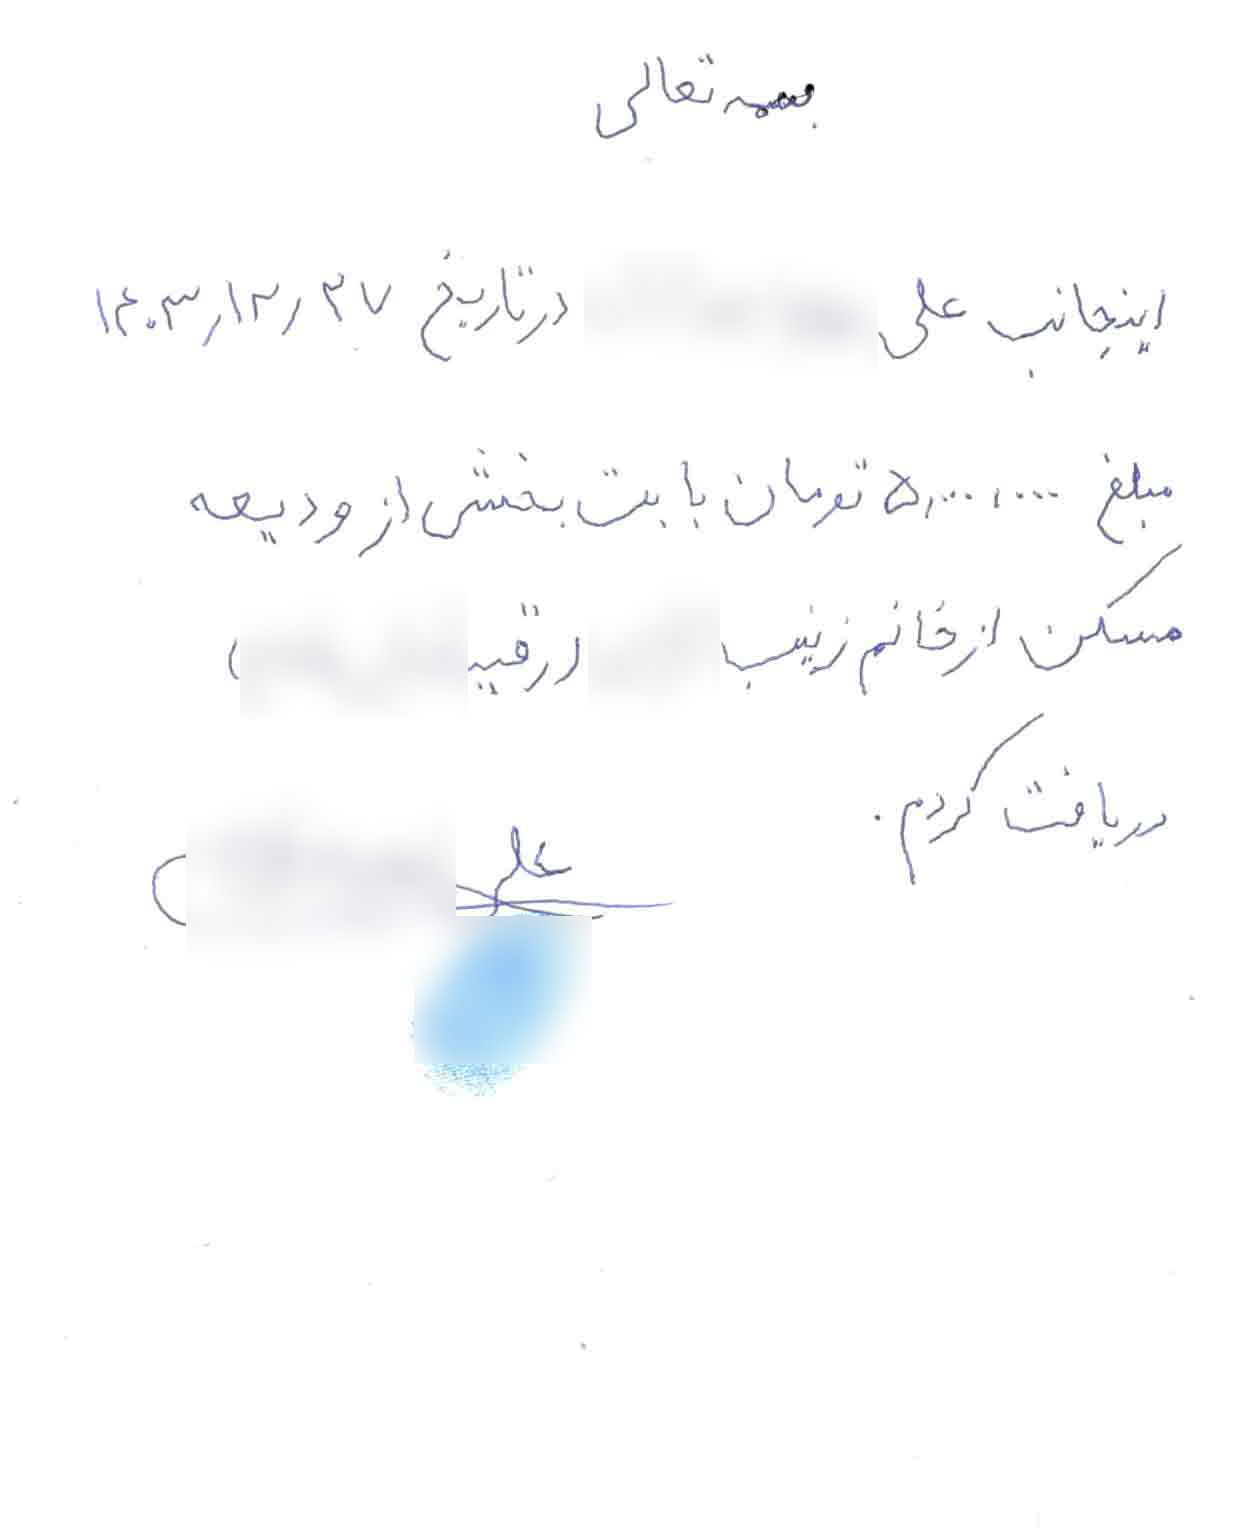 بسمه تعالی
اینجانب علی در تاریخ ۱۴۰۳/۱۲/۲۷
مبلغ ۵,۰۰۰,۰۰۰ تومان بابت بخشی از ودیعه
مسکن از خانم زینب (رقیه )
دریافت کردم.
علی